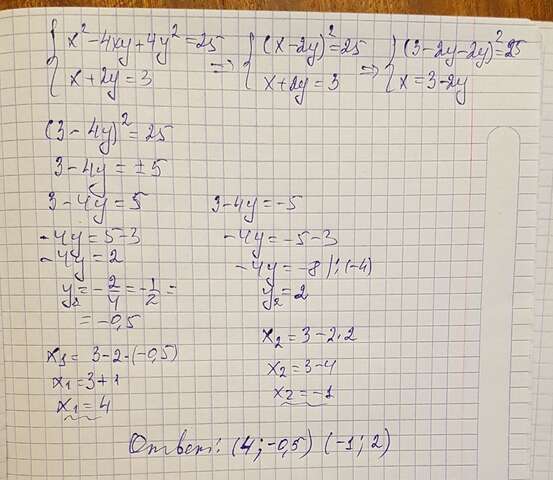 { x² - 4xy + 4y² = 25 => { (x - 2y)² = 25 => { (3 - 2y - 2y)² = 25
x + 2y = 3 x + 2y = 3 x = 3 - 2y
(3 - 4y)² = 25
3 - 4y = ±5
3 - 4y = 5
-4y = 5 - 3
-4y = 2
y₁ = -2/4 = -1/2 =
= -0,5
x₁ = 3 - 2·(-0,5)
x₁ = 3 + 1
x₁ = 4
3 - 4y = -5
-4y = -5 - 3
-4y = -8 |:(-4)
y₂ = 2
x₂ = 3 - 2·2
x₂ = 3 - 4
x₂ = -1
Ответ: (4; -0,5) (-1; 2)